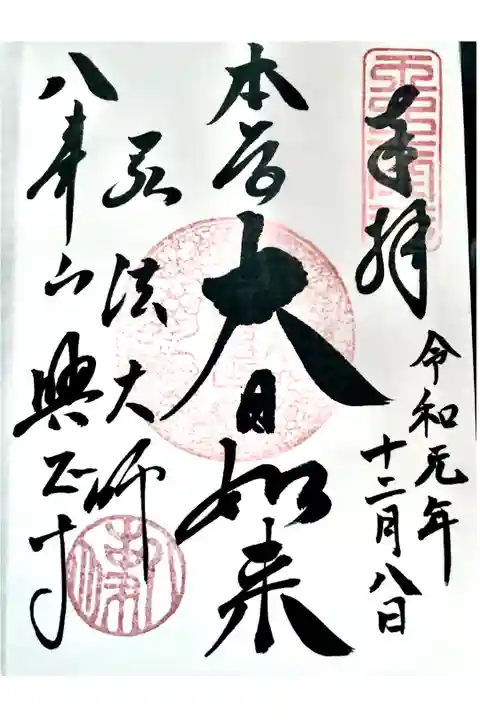 奉拝
令和元年
十二月八日
本尊
大日如来
弘法大師
八事山
興正寺